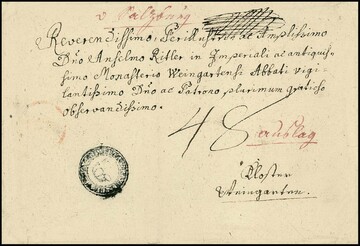 v Salzburg
Reverendissimo, Perillustri ac Amplissimo
Dño Anselmo Ritler in Imperiali ac antiquis-
simo Monasterio Weingartensi Abbati vigi-
lantissimo Dño ac Patrono plurimum gratioso
observandissimo.
48
Closter
Weingarten.